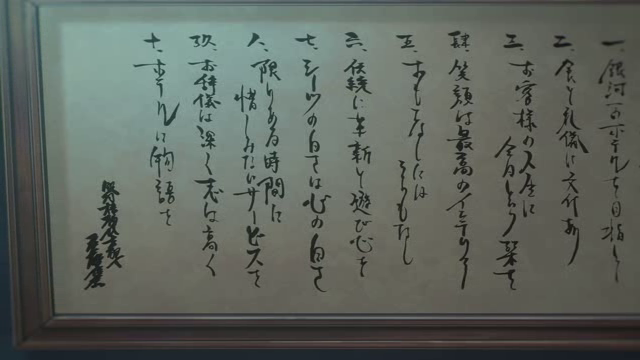 一、銀河一のホテルを目指して
二、食と礼儀に文化あり
三、お客様の人生に
今日という栞を
肆、笑顔は最高のインテリア
五、おもてなしにはうらもなし
六、伝統に革新と遊び心を
七、シーツの白さは心の白さ
八、限りある時間に
惜しみないサービスを
玖、お辞儀は深く志は高く
十、ホテルに物語を